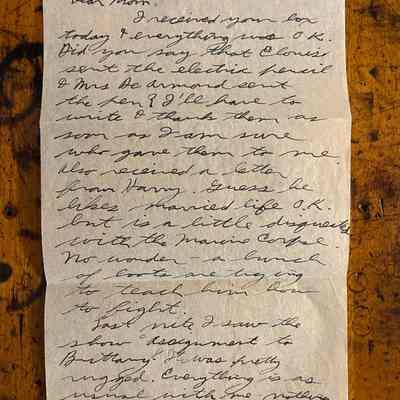 Dear Mom.
I received your box
today & everything was O.K.
Did you say that Elouise
sent the electric pencil
& Mrs De Armond sent
the pen? I'll have to
write & thank them as
soon as I am sure
who gave them to me.
Also received a letter
from Harry. Guess he
likes married life O.K.
but is a little disgusted
with the Marine Corps.
No wonder - a bunch
of boots are trying
to teach him how
to fight.
Last nite I saw the
show Assignment to
Brittany. It was pretty
rugged. Everything is as
usual with me